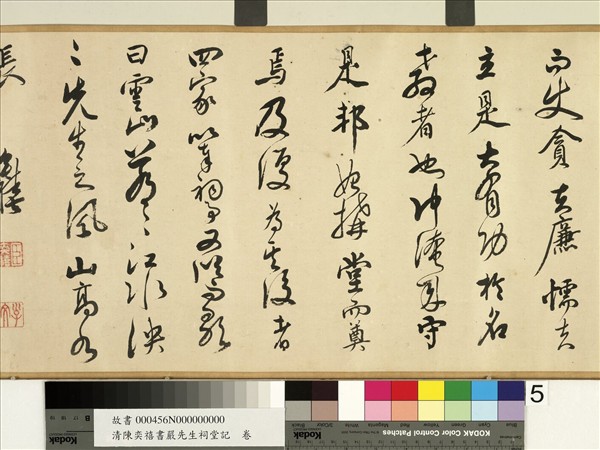 而使貪夫廉懦夫
立是大有功於名
教者也仲淹來守
是邦始構堂而奠
焉及復為其後者
四家以奉祠事又從而歌
曰雲山蒼〻江水泱
〻先生之風山高水
長
奕禧
5
故書 000456N000000000
清陳奕禧書嚴先生祠堂記 卷
Kodak
KODAK Color Control Patches
Blue Cyan Green Yellow Red Magenta White 3/Color Black